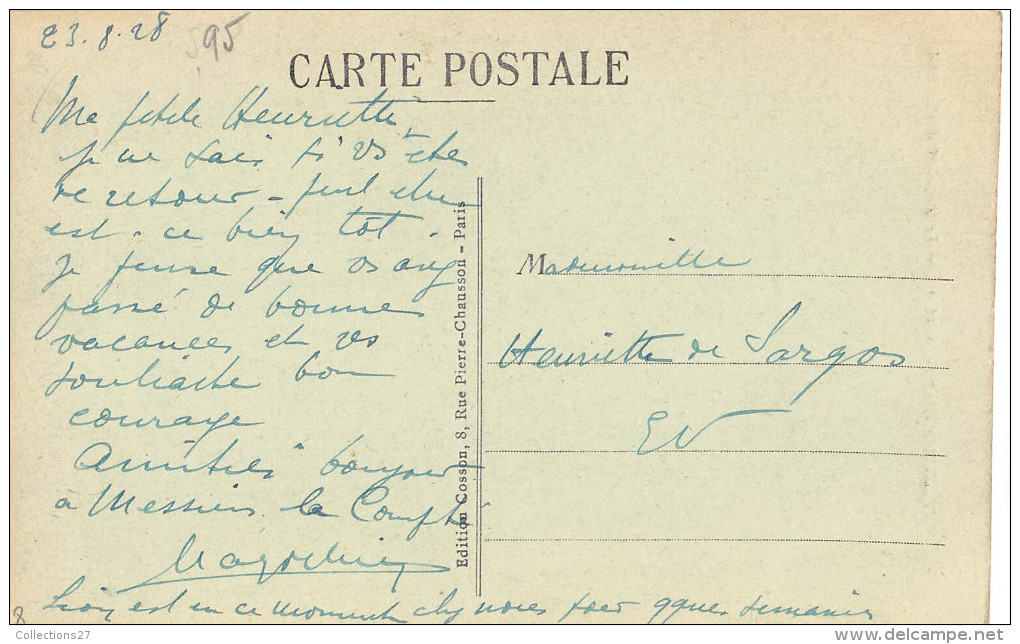 23.8.28
95
CARTE POSTALE
Ma petite Henriette
je ne sais si vs êtes
de retour - peut être
est-ce bien tôt.
Je pense que vs avez
passé de bonnes
vacances et vs
souhaite bon
courage
Amitiés bonjour
à Messieurs la Compté
est en ce moment chez nous pour qques semaines
Edition Cosson, 8, Rue Pierre-Chausson - Paris
Mademoiselle
Henriette de Sargos
EV
8
Collections27
www.delcampe.net